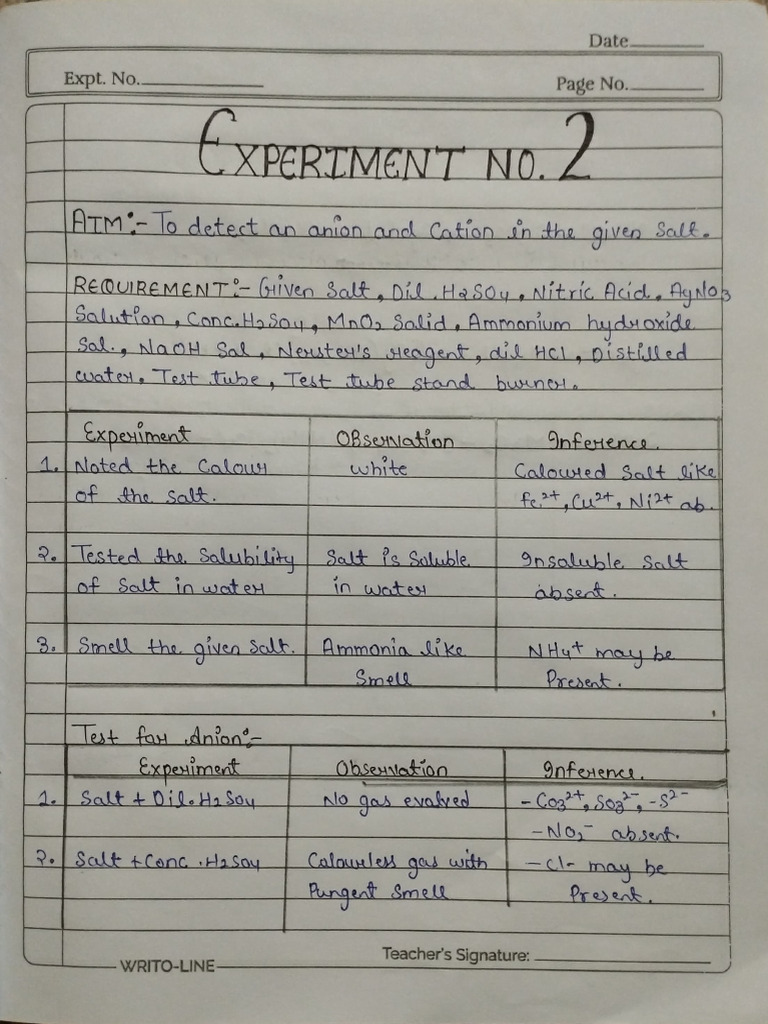 Date
Expt. No.
Page No.
EXPERIMENT NO. 2
AIM:- To detect an anion and Cation in the given Salt.
REQUIREMENT:- Given Salt, Dil. H2SO4, Nitric Acid, AgNO3
Solution, Conc. H2SO4, MnO2 Solid, Ammonium hydroxide
Sol., NaOH Sol, Nerster's reagent, dil HCl, Distilled
water, Test tube, Test tube stand burner.
Experiment Observation Inference.
1. Noted the Colour white Coloured Salt like
of the salt. Fe2+, Cu2+, Ni2+ ab.
2. Tested the Solubility Salt is Soluble Insoluble Salt
of Salt in water in water absent.
3. Smell the given Salt. Ammonia like NH4+ may be
Smell Present.
Test for Anion:-
Experiment Observation Inference.
1. Salt + Dil. H2SO4 No gas evolved - CO3 2+, SO3 2-, -S2-
- NO2- absent.
2. Salt + Conc. H2SO4 Colourless gas with - Cl- may be
Pungent Smell Present.
Teacher's Signature:
WRITO-LINE